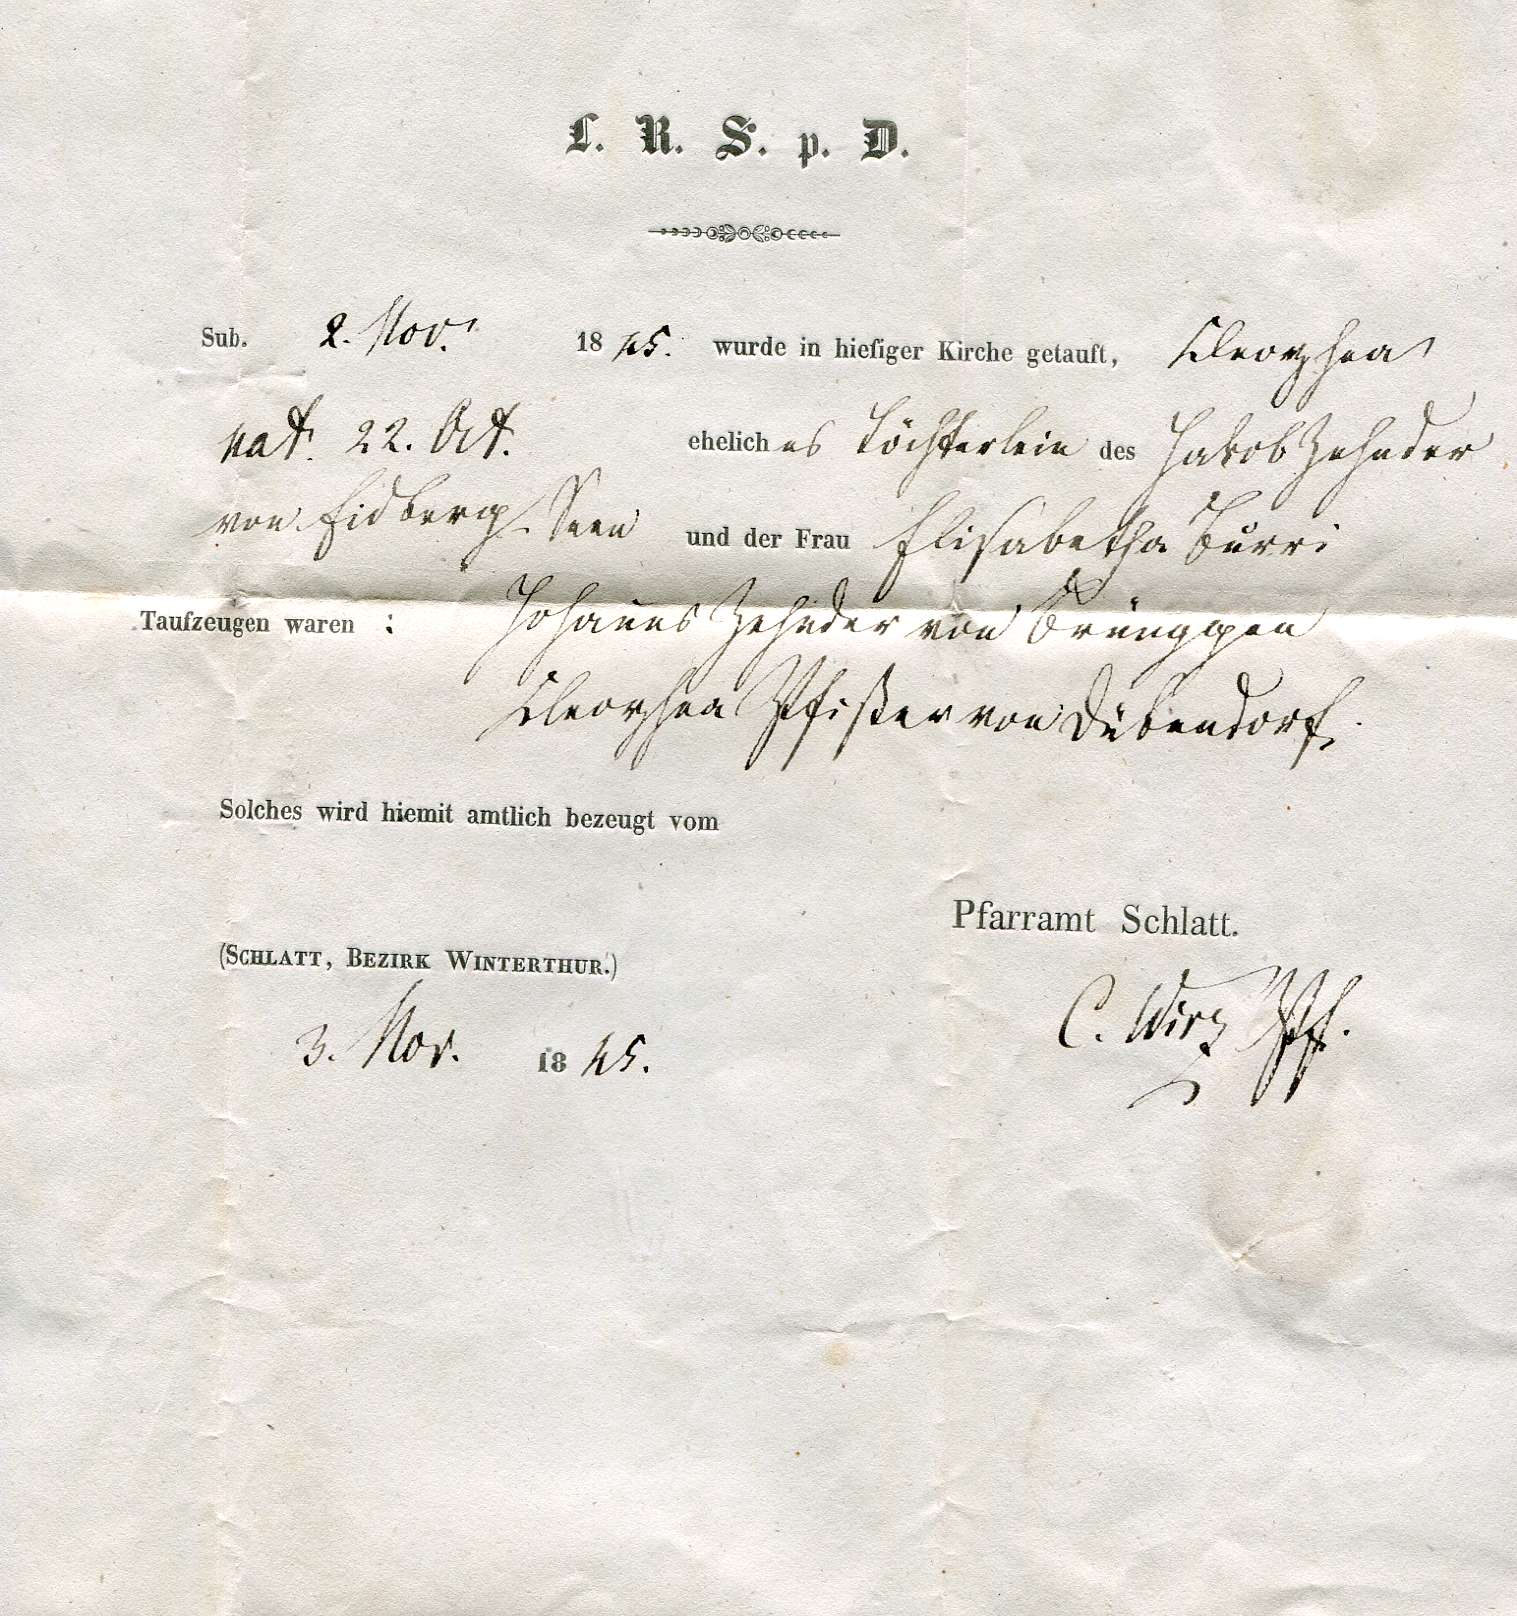 L. R. S. p. D.
Sub. 2. Nov. 1845. wurde in hiesiger Kirche getauft, Cleophea
nat. 22. Oct. eheliches Töchterlein des Jakob Zehnder
von Eidberg, Seen und der Frau Elisabetha Burri
Taufzeugen waren : Johannes Zehnder von Brünggen
Cleophea Pfister von Dübendorf.
Solches wird hiemit amtlich bezeugt vom
Pfarramt Schlatt.
(SCHLATT, BEZIRK WINTERTHUR.)
C. Wirz Pfr.
3. Nov. 1845.